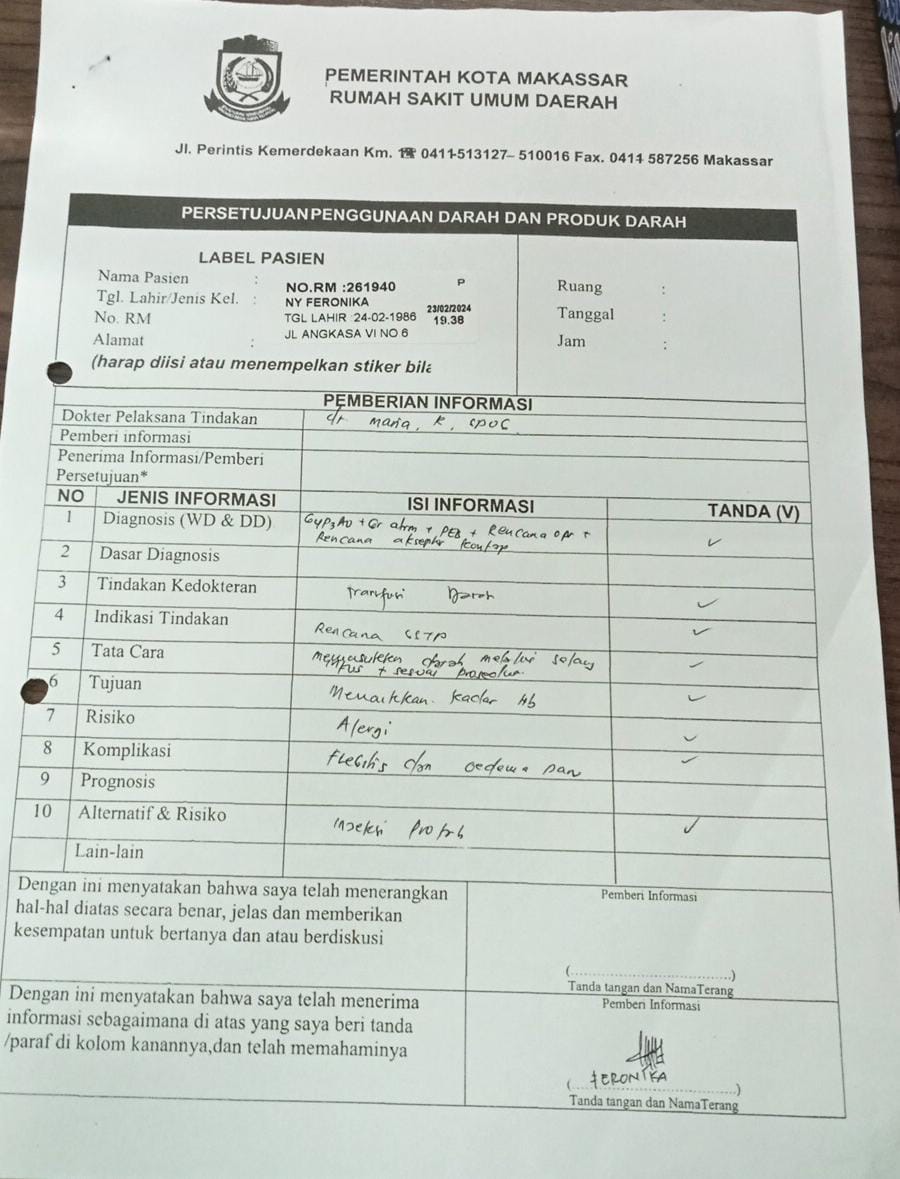 PEMERINTAH KOTA MAKASSAR
RUMAH SAKIT UMUM DAERAH
Jl. Perintis Kemerdekaan Km. ☎ 0411-513127– 510016 Fax. 0411 587256 Makassar
PERSETUJUAN PENGGUNAAN DARAH DAN PRODUK DARAH
LABEL PASIEN
Nama Pasien :
Tgl. Lahir/Jenis Kel. :
No. RM
Alamat :
NO.RM :261940 P
NY FERONIKA
TGL LAHIR 24-02-1986
23/02/2024
19.38
JL ANGKASA VI NO 6
(harap diisi atau menempelkan stiker bila
Ruang :
Tanggal :
Jam :
PEMBERIAN INFORMASI
Dokter Pelaksana Tindakan dr Maria, K, SPOG
Pemberi informasi
Penerima Informasi/Pemberi
Persetujuan*
NO JENIS INFORMASI ISI INFORMASI TANDA (V)
1 Diagnosis (WD & DD) + PEB + Rencana +
Rencana akseptor kontap ✓
2 Dasar Diagnosis
3 Tindakan Kedokteran Tranfusi Darah ✓
4 Indikasi Tindakan Rencana SSTP ✓
5 Tata Cara darah melalui selang
+ sesuai prosedur. ✓
6 Tujuan Menaikkan kadar Hb ✓
7 Risiko Alergi ✓
8 Komplikasi Flebitis dan oedema ✓
9 Prognosis
10 Alternatif & Risiko ✓
Lain-lain
Dengan ini menyatakan bahwa saya telah menerangkan
hal-hal diatas secara benar, jelas dan memberikan
kesempatan untuk bertanya dan atau berdiskusi
Pemberi Informasi
(.................................)
Tanda tangan dan NamaTerang
Dengan ini menyatakan bahwa saya telah menerima
informasi sebagaimana di atas yang saya beri tanda
/paraf di kolom kanannya,dan telah memahaminya
Pemberi Informasi
FERONIKA
(.................................)
Tanda tangan dan NamaTerang